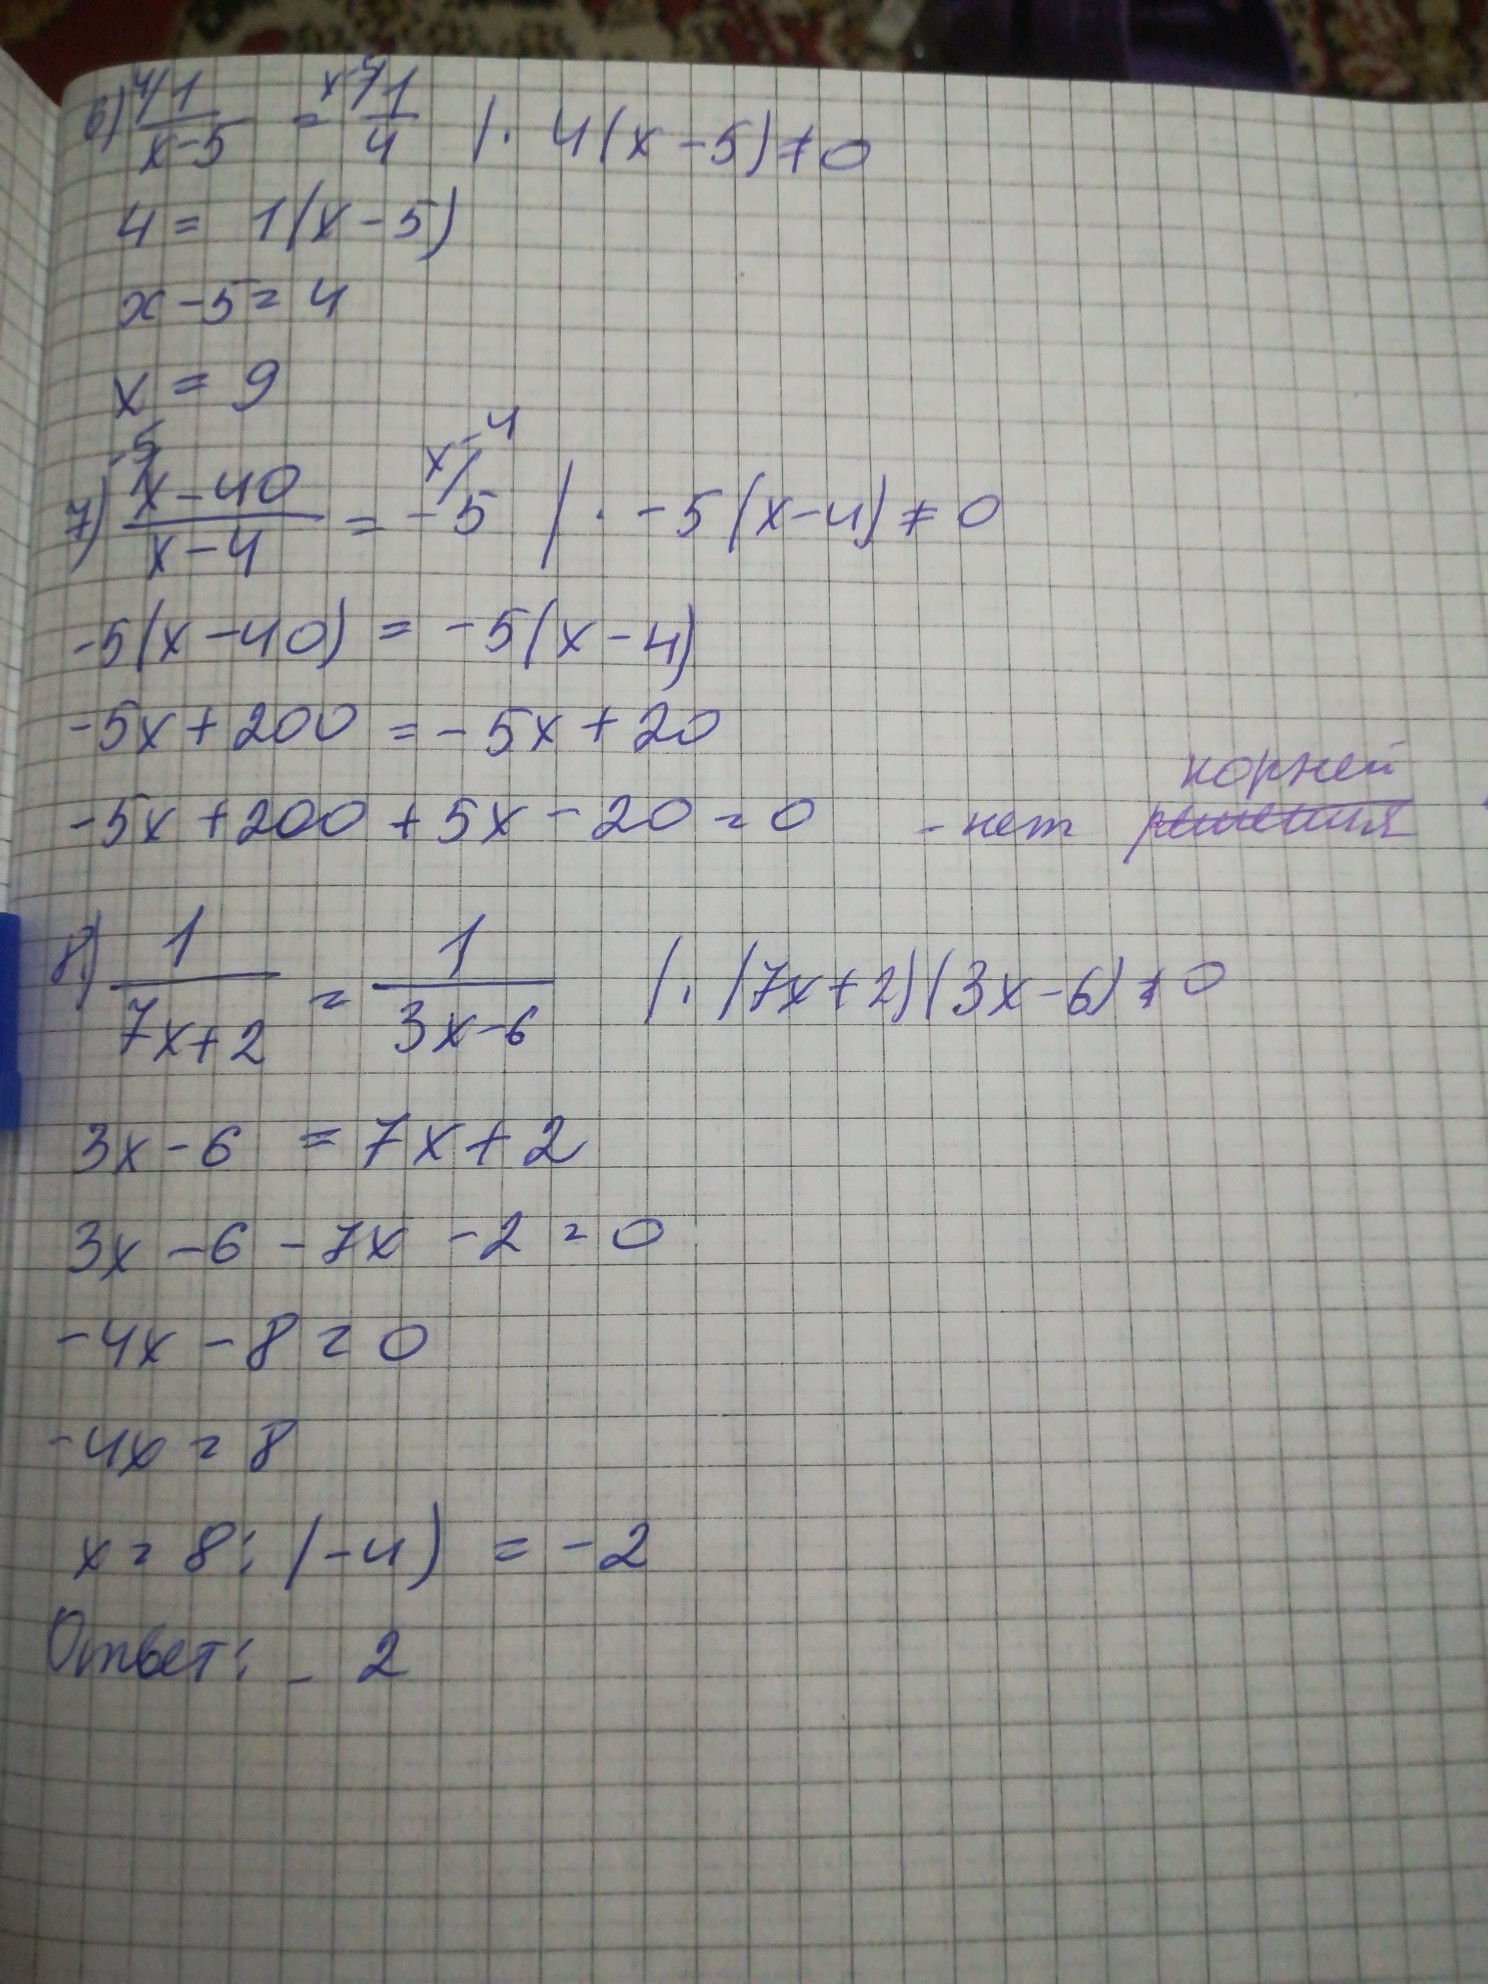 6) 4/ 1/(x-5) = x-/ 1/4 | · 4(x-5)≠0
4 = 1(x-5)
x-5=4
x = 9
7) -5/ (x-40)/(x-4) = x-4/ -5 | · -5(x-4)≠0
-5(x-40) = -5(x-4)
-5x+200 = -5x+20
-5x+200+5x-20=0 - нет корней решения
8) 1/(7x+2) = 1/(3x-6) | · (7x+2)(3x-6)≠0
3x-6 = 7x+2
3x-6-7x-2=0
-4x-8=0
-4x=8
x=8:(-4) = -2
Ответ: -2